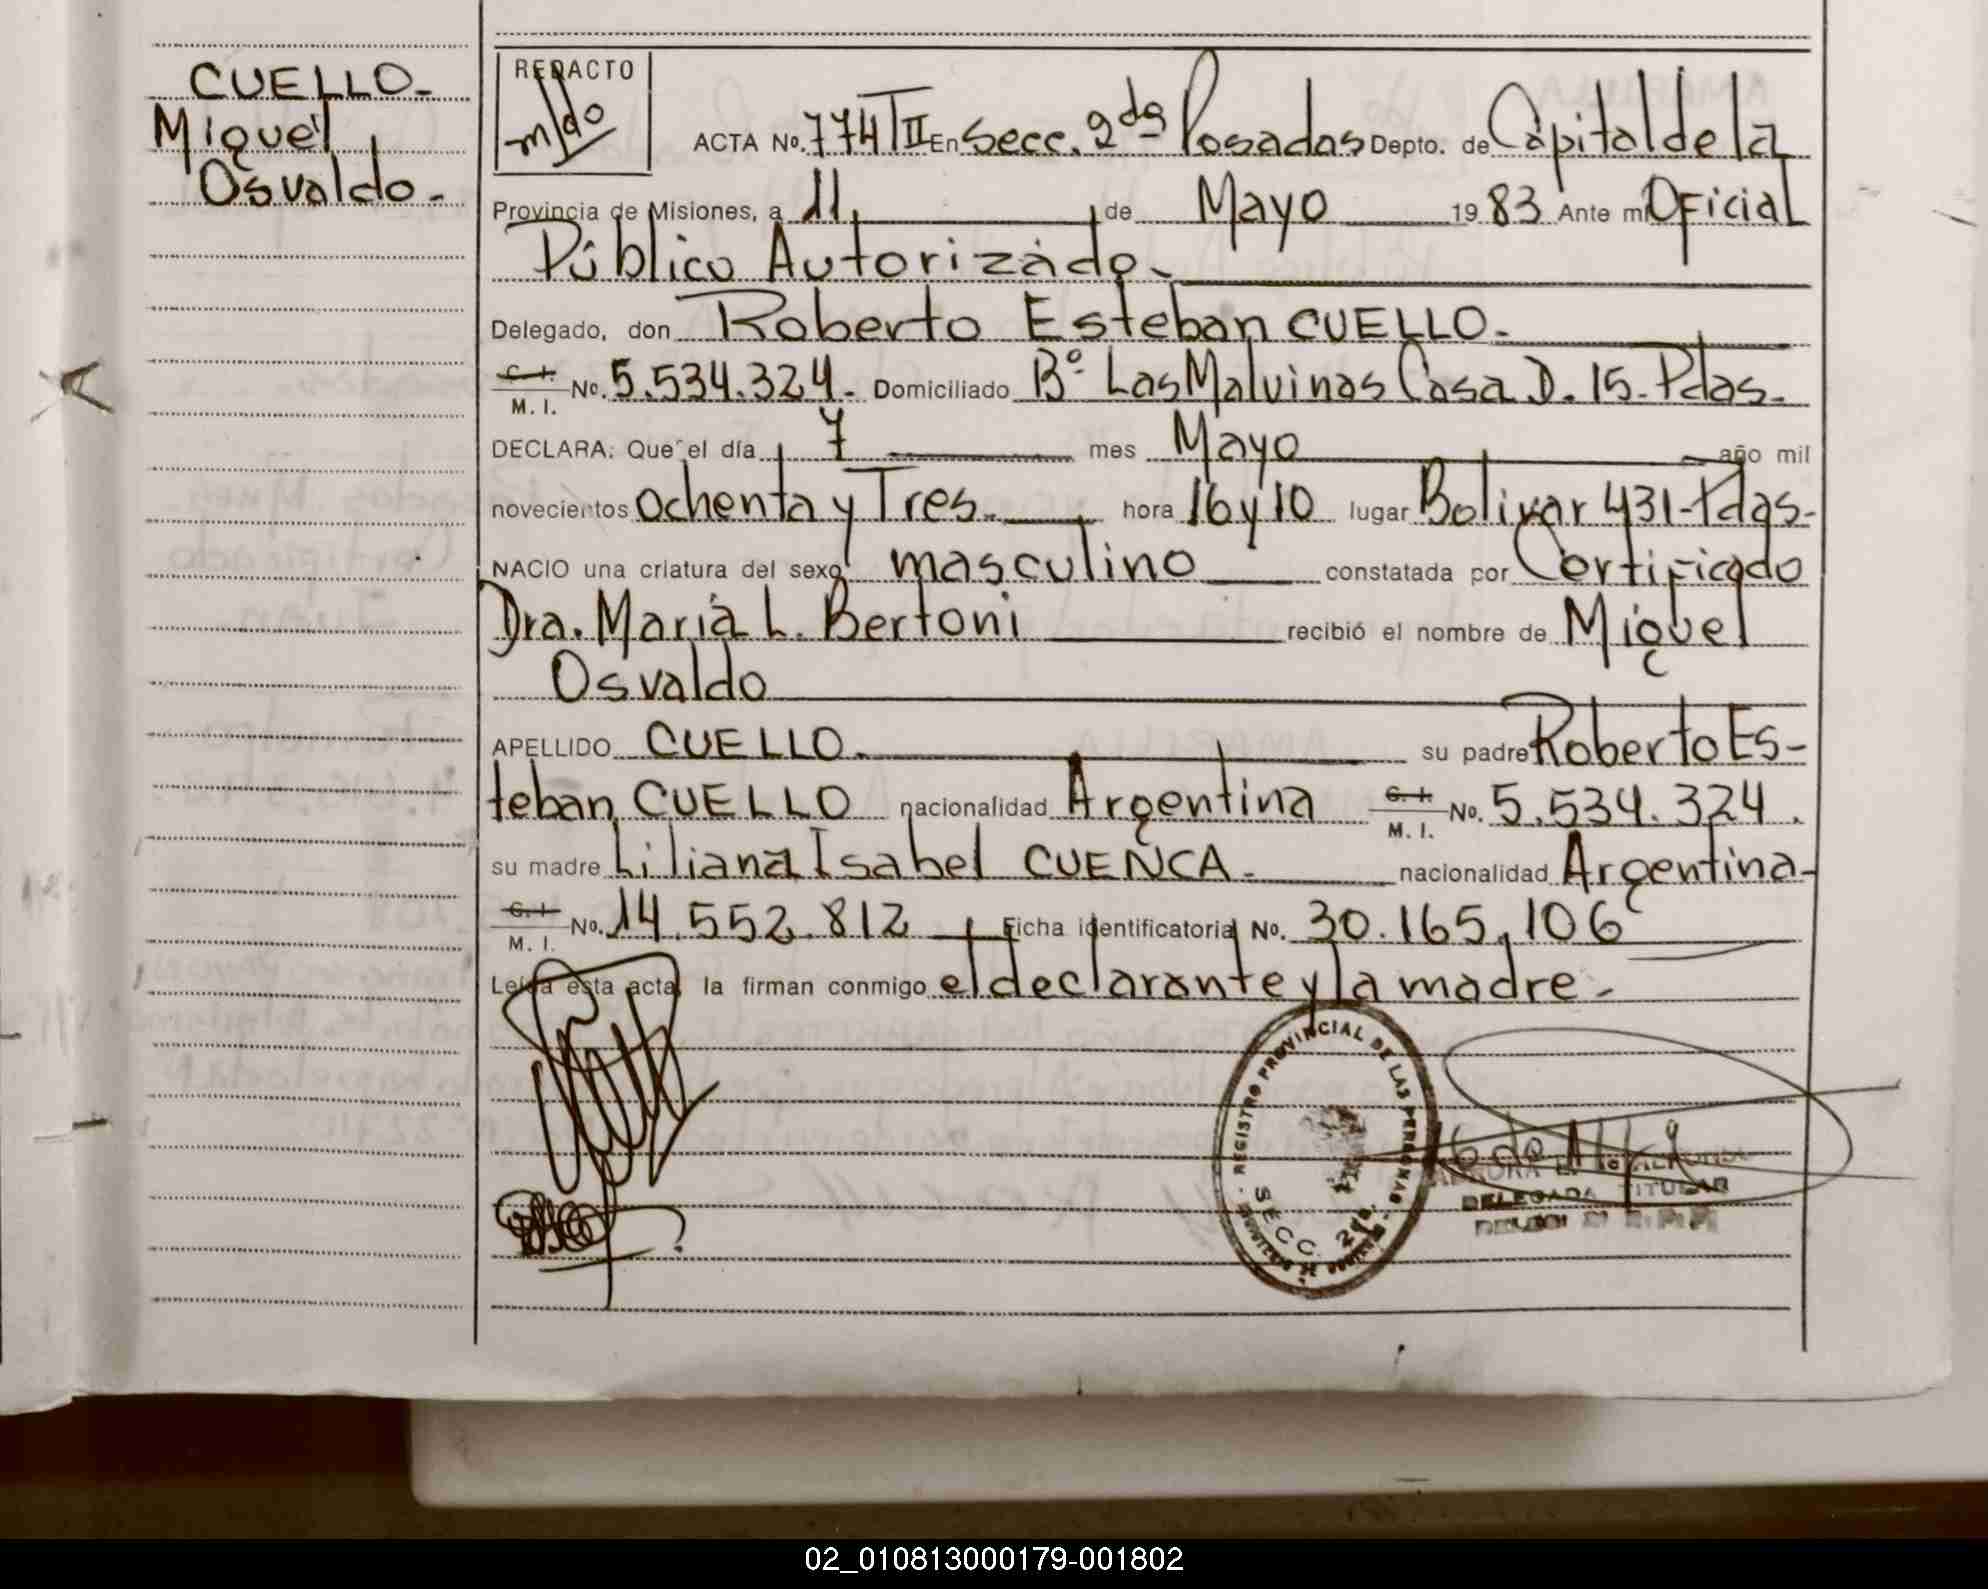 CUELLO-
Miguel
Osvaldo.-
REDACTO
ACTA No. 774 TII En Secc. 2da Posadas Depto. de Capital de la
Provincia de Misiones, a 11, de Mayo 19 83 Ante mi Oficial
Público Autorizado.-
Delegado, don Roberto Esteban CUELLO.-
C. I.
M. I. No. 5.534.324.- Domiciliado Bº Las Malvinas Casa D. 15.- Pdas.-
DECLARA: Que el día 7 mes Mayo año mil
novecientos ochenta y Tres.- hora 16 y 10 lugar Bolivar 431-Pdas-
NACIO una criatura del sexo masculino constatada por Certificado
Dra. Maria L. Bertoni recibió el nombre de Miguel
Osvaldo
APELLIDO CUELLO.- su padre Roberto Es-
teban CUELLO nacionalidad Argentina C. I.
M. I. No. 5.534.324.
su madre Liliana Isabel CUENCA.- nacionalidad Argentina-
C. I.
M. I. No. 14.552.812 Ficha identificatoria No. 30.165.106
Leída esta acta, la firman conmigo el declarante y la madre.-
REGISTRO PROVINCIAL DE LAS PERSONAS
SECC. 2da.
DELEGADA TITULAR
02_010813000179-001802